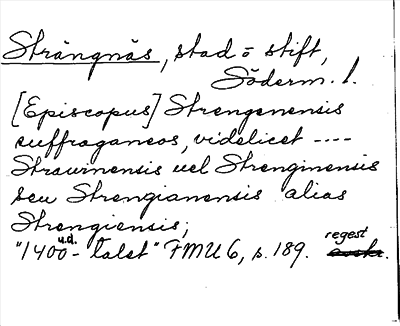 Strängnäs, stad o stift,
Söderm. l.
[Episcopus] Strengenensis
suffraganeos, videlicet ----
Strauinensis uel Strenginensis
seu Strengianensis alias
Strengiensis;
u.d. regest
"1400-talet" FMU 6, s. 189. avskr.